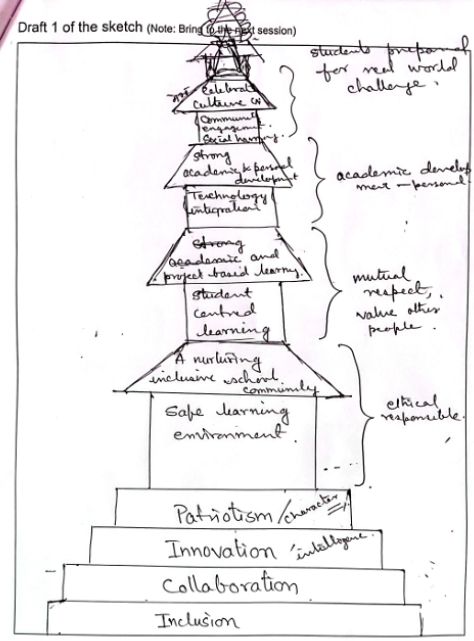 Draft 1 of the sketch (Note: Bring to the next session)
students prepared
for real world
challenge.
Art
Celebrate
culture
Community
engagement.
Social harmony.
strong
academic & personal
development
Technology
integration
academic develop
ment - personal
strong
academic and
project based learning.
student
centred
learning
mutual
respect,
value other
people.
A nurturing
inclusive school
community
Safe learning
environment.
ethical
responsible.
Patriotism / character
Innovation intelligence.
Collaboration
Inclusion